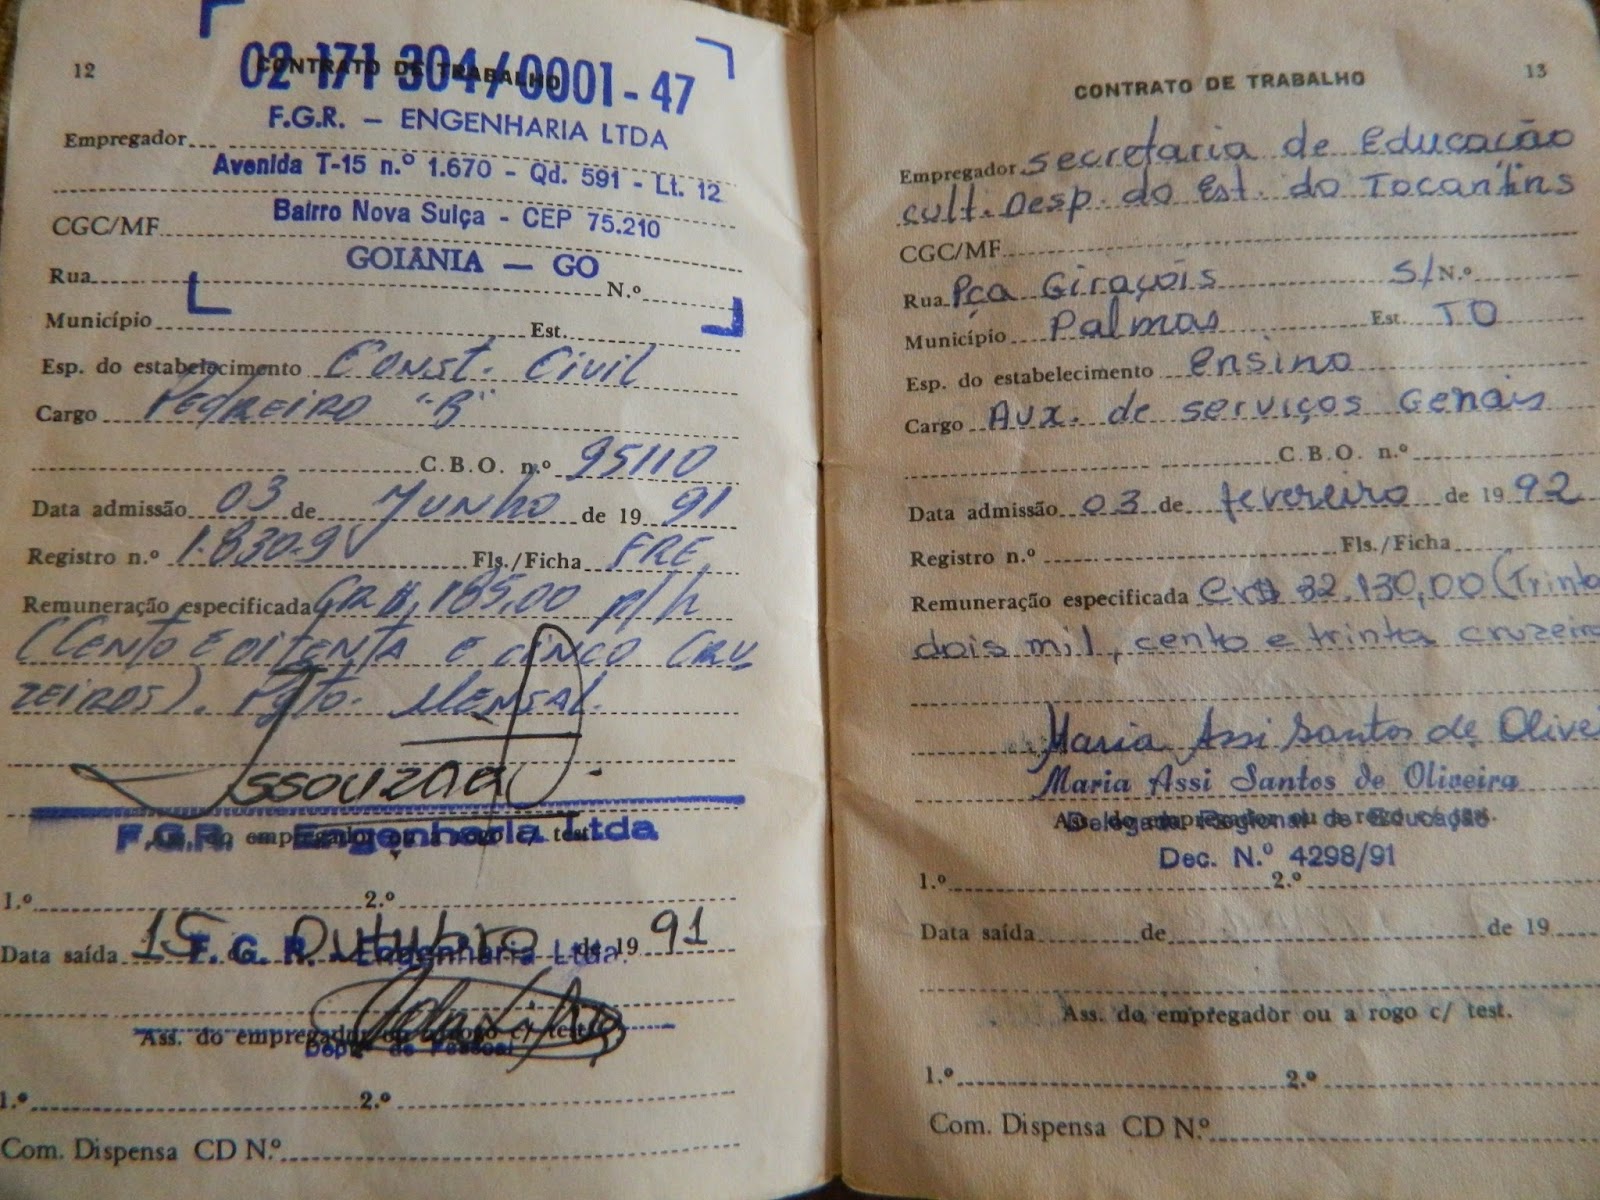 12
CONTRATO DE TRABALHO
02 171 304/0001-47
F.G.R. — ENGENHARIA LTDA
Empregador
Avenida T-15 n.º 1.670 - Qd. 591 - Lt. 12
Bairro Nova Suiça - CEP 75.210
CGC/MF
GOIÂNIA — GO
Rua N.º
Município Est.
Esp. do estabelecimento Const. Civil
Cargo Pedreiro "B"
C.B.O. n.º 95110
Data admissão 03 de Junho de 19 91
Registro n.º 1.830.9 Fls./Ficha FRE
Remuneração especificada CR$, 185,00 p/h
(Cento e oitenta e cinco cru
zeiros). Pgto. Mensal.
F.G.R. Engenharia Ltda
Ass. do empregador ou a rogo c/ test.
1.º 2.º
Data saída 15 de Outubro de 19 91
F. G. R. - Engenharia Ltda.
Ass. do empregador ou a rogo c/ test.
Deptº de Pessoal
1.º 2.º
Com. Dispensa CD N.º
13
CONTRATO DE TRABALHO
Empregador Secretaria de Educação
cult. Desp. do Est. do Tocantins
CGC/MF
Rua Pça Giraçóis S/ N.º
Município Palmas Est. TO
Esp. do estabelecimento ensino
Cargo Aux. de serviços Gerais
C.B.O. n.º
Data admissão 03 de fevereiro de 19 92
Registro n.º Fls./Ficha
Remuneração especificada Cr$ 32.130,00 (Trinta
dois mil, cento e trinta cruzeiro
Maria Assi Santos de Olivei
Maria Assi Santos de Oliveira
Ass. do empregador ou a rogo c/ test.
Delegada Regional de Educação
Dec. N.º 4298/91
1.º 2.º
Data saída de de 19
Ass. do empregador ou a rogo c/ test.
1.º 2.º
Com. Dispensa CD N.º